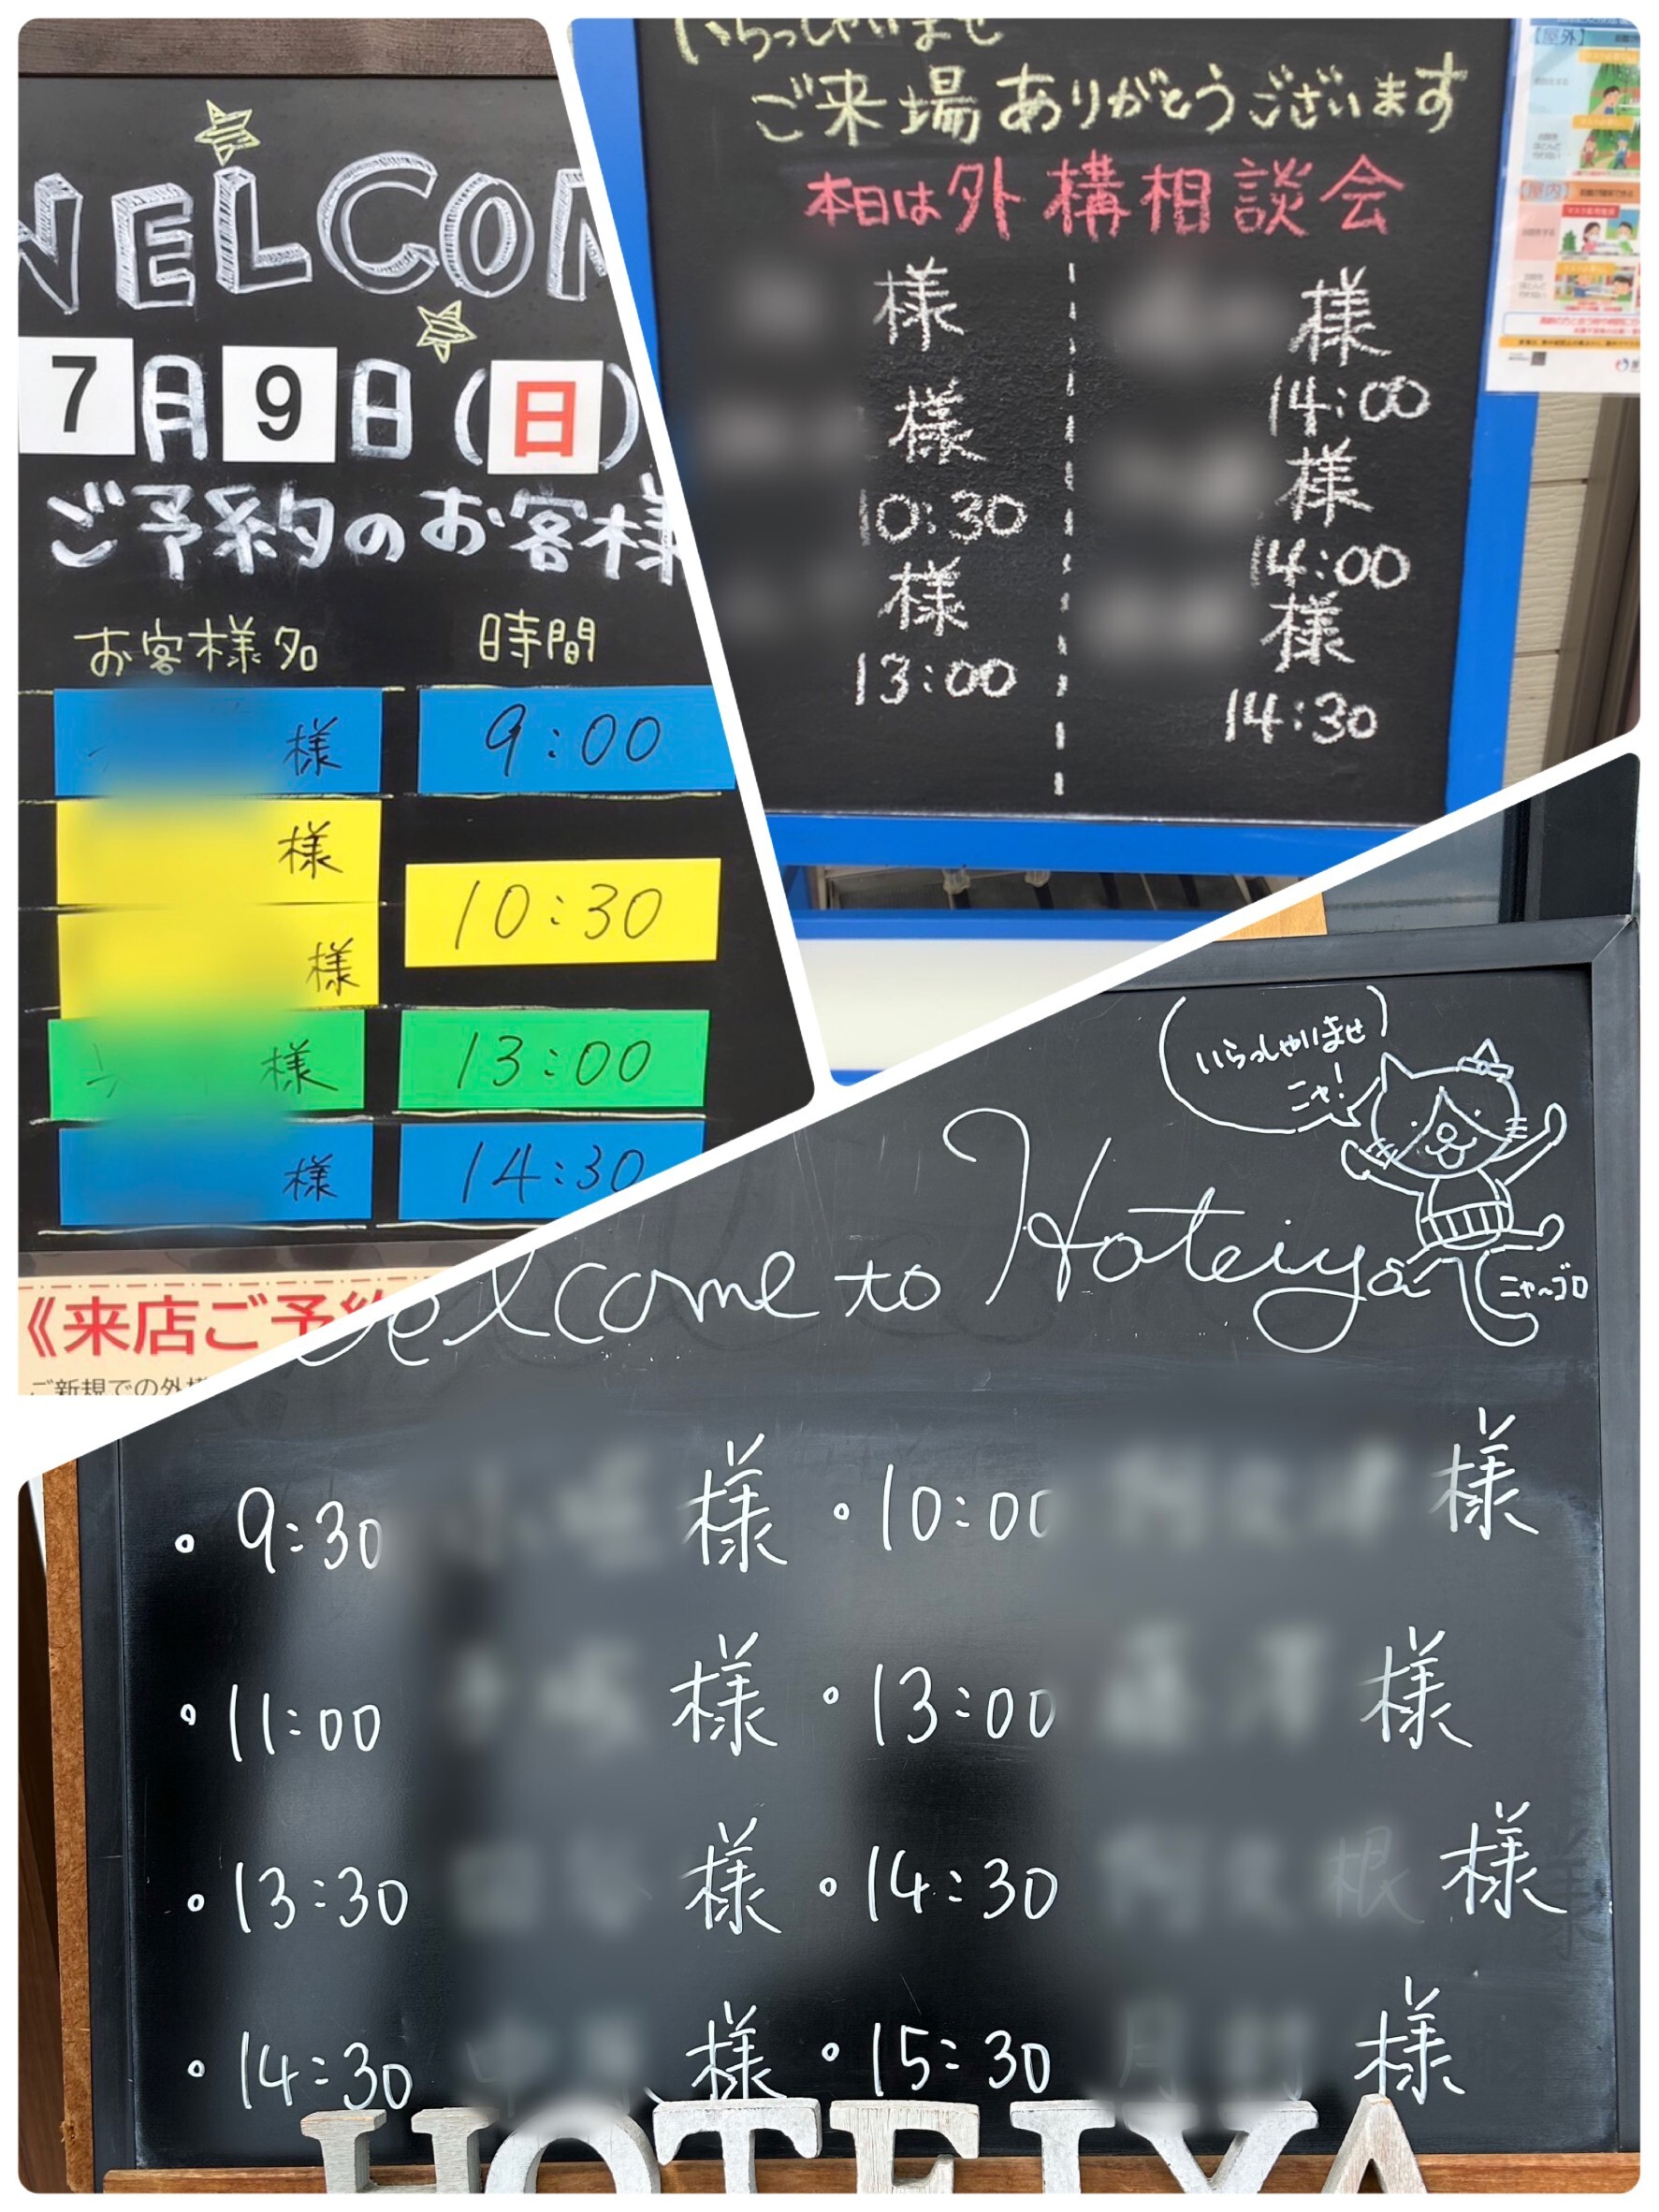 WELCOM
7月9日(日)
ご予約のお客様
お客様名 時間
様 9:00
様
10:30
様
様 13:00
様 14:30
《来店ご予約
ご新規での外構
いらっしゃいませ
ご来場ありがとうございます
本日は外構相談会
様 様
14:00
様 様
10:30 14:00
様 様
13:00 14:30
【屋外】
【屋内】
いらっしゃいませ
ニャ!
Welcome to Hoteiya
ニャ~ゴロ
・9:30 様 ・10:00 様
・11:00 様 ・13:00 様
・13:30 様 ・14:30 根 様
・14:30 様 ・15:30 様
HOTEIYA